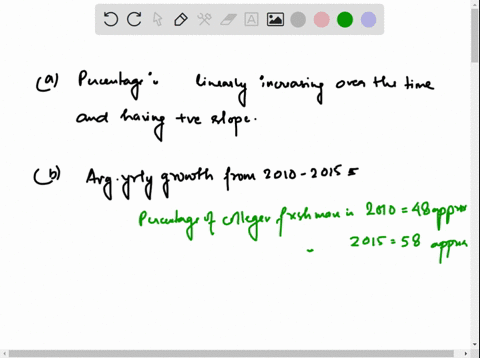 (a) Percentage: linearly increasing over the time
and having +ve slope.
(b) Avg. yrly growth from 2010-2015 =
Percentage of colleger freshman in 2010 = 48 approx
" 2015 = 58 approx